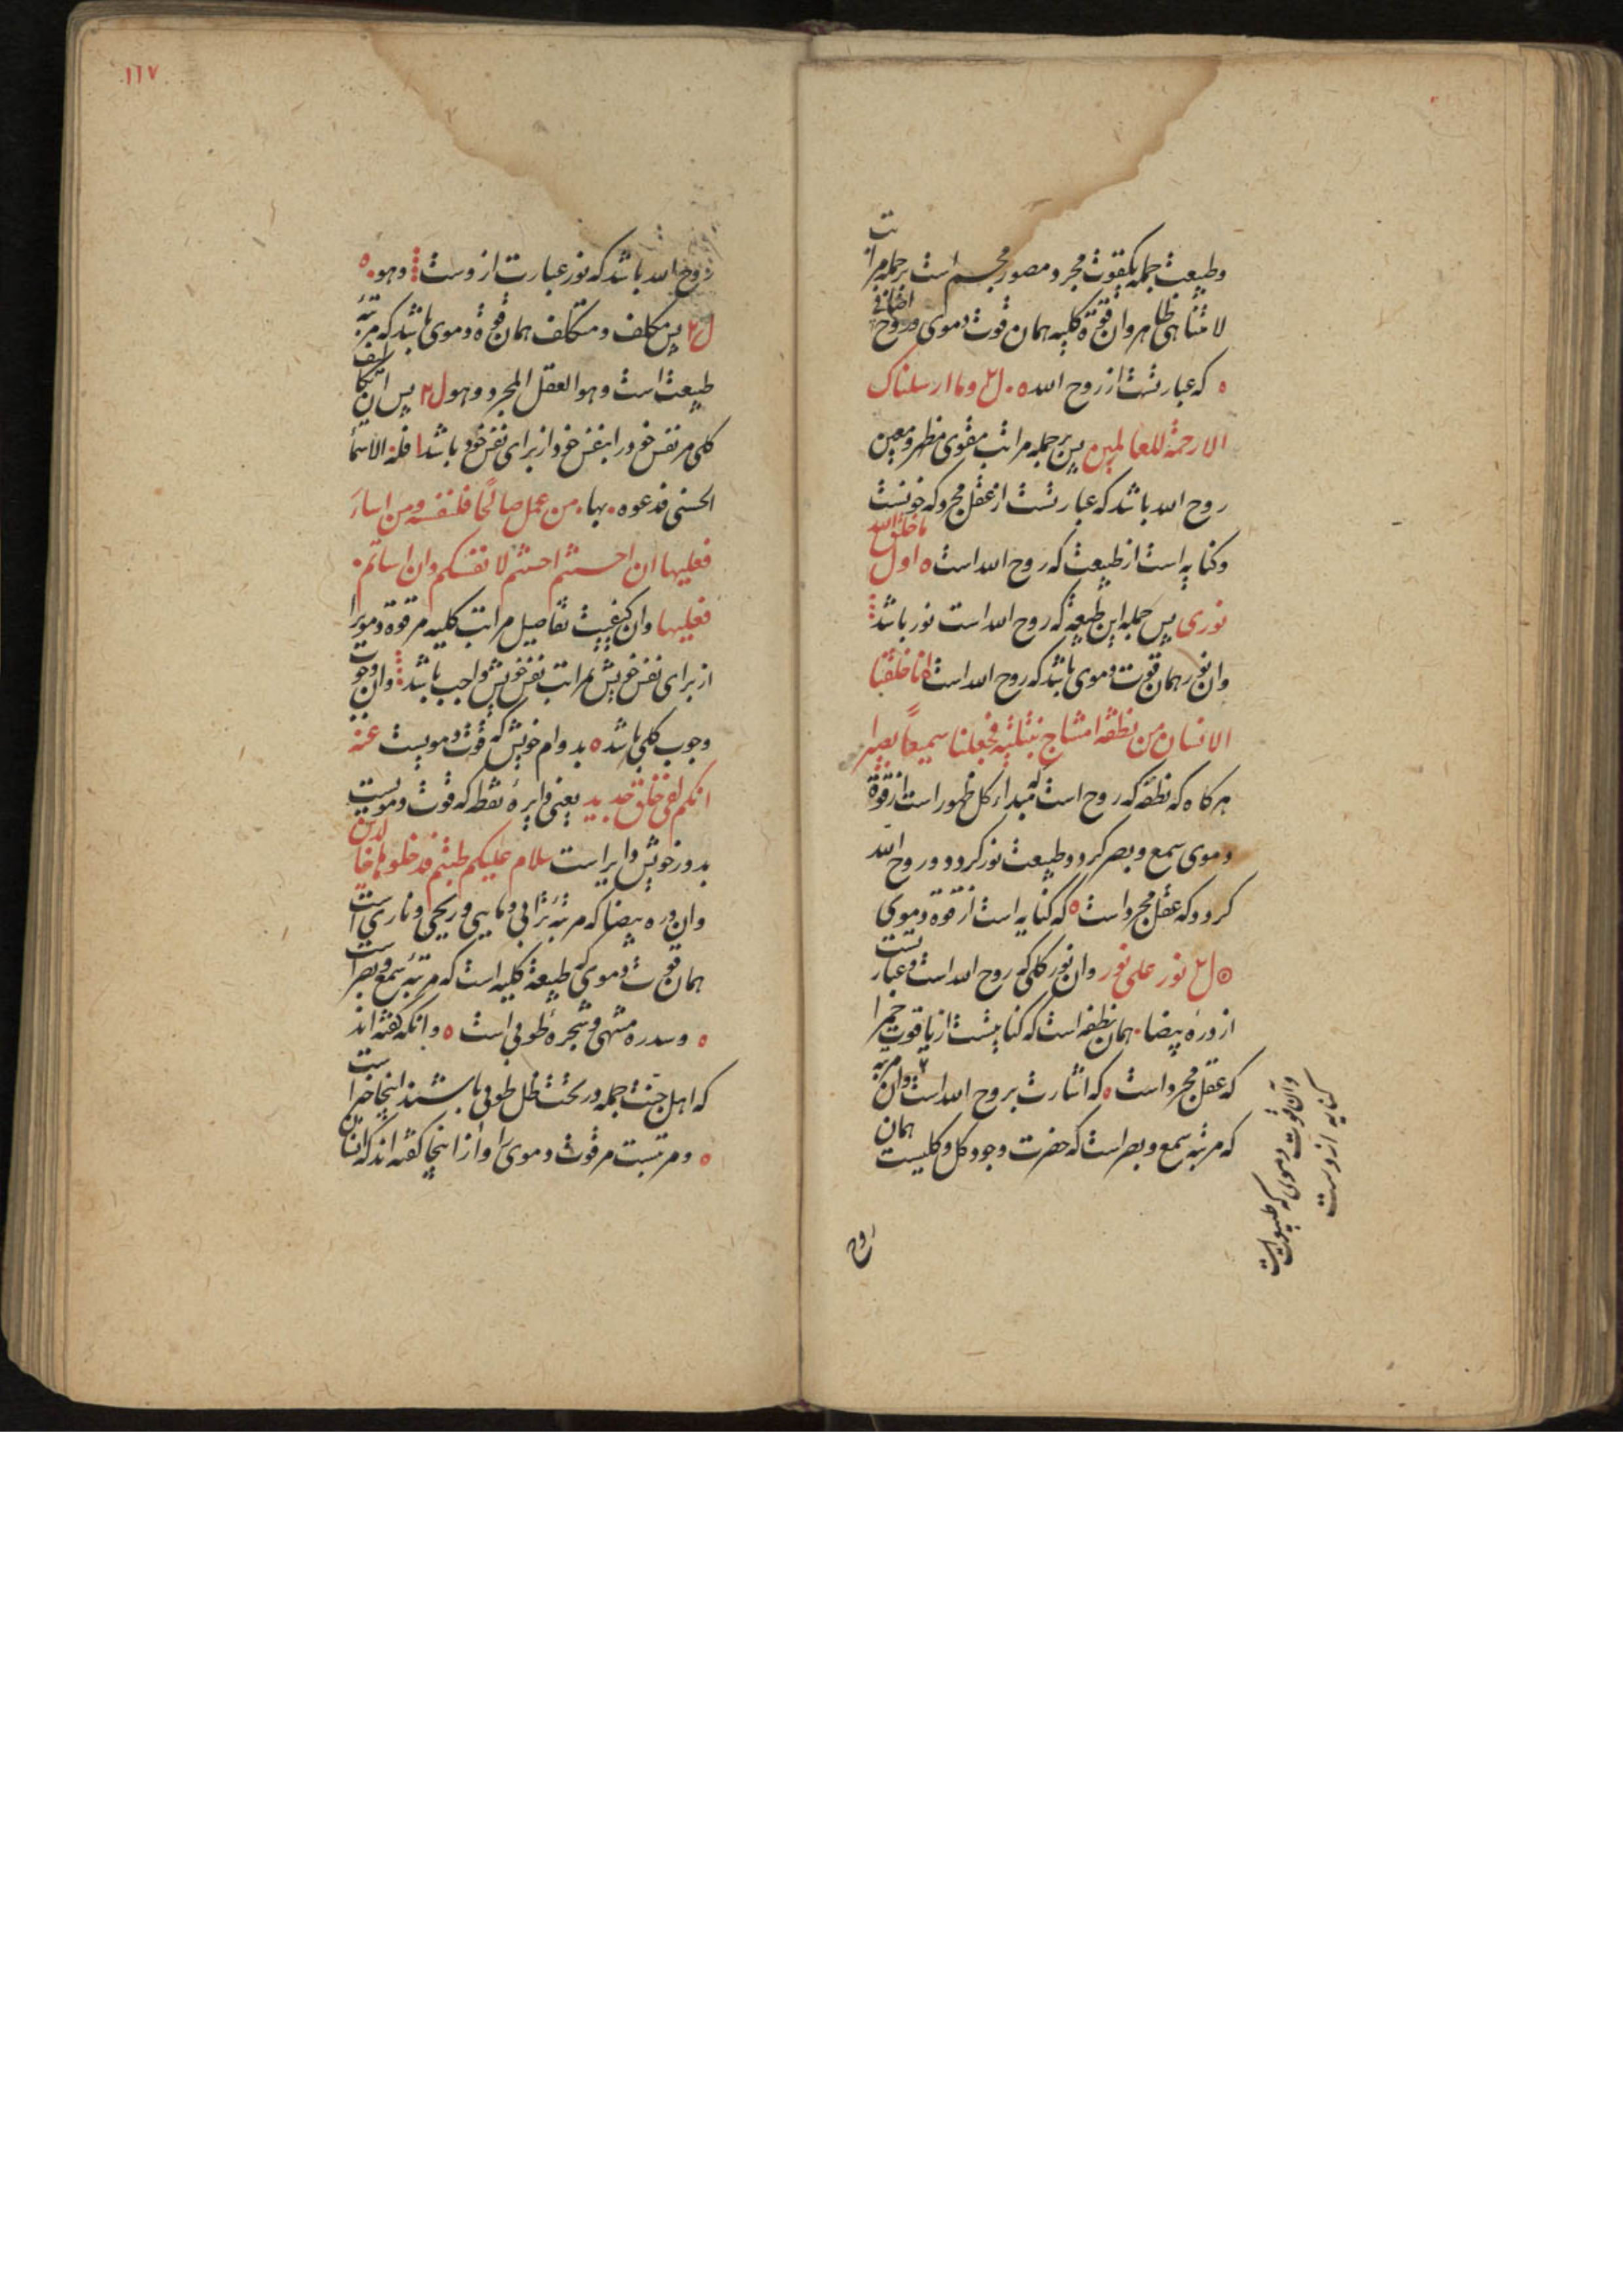 وطبیعت جمله بکقوت مجرد و مصور مجسم است برجمله مراتب
لامتناهی ظاهر وان قوة کلیه همان قوت دموی وروح اضافی
که عبارتست از روح الله ه ل م وما ارسلناک
الا رحمة للعالمین پس بر جمله مراتب مقوی مظهر ومعین
روح الله باشد که عبارتست از عقل مجرد که خونست
وکنایه است از طبیعت که روح الله است ه اول ما خلق الله
نوری پس جمله این طبیعة که روح الله است نور باشد
وان نور همان قوت دموی باشد که روح الله است انا خلقنا
الانسان من نطفة امشاج نبتلیه فجعلنا سمیعا بصیرا
هرکاه که نطفه که روح است که مبداء کل ظهور است از قوة
دموی سمع و بصر کردد وطبیعت نور کردد و روح الله
کردد که عقل مجرد است ه که کنایه است از قوة دموی
ل م نور علی نور وان نور کلی که روح الله است وعبارتست
از دره بیضا همان نطفه است که کنایتست از یاقوت حمرا
که عقل مجرد است ه که اشارت بروح الله است وان مرتبه
که مرتبه سمع و بصر است که حضرت وجود کل وکلیست همان
وآن قوت دموی که طبیعت است
کنایه از وست
روح
۱۱۷
روح الله باشد که نور عبارت از وست وهو ه
ل م پس مکلف و متکلف همان قوة دموی باشد که مرتبه
طبیعت است وهو العقل المجرد وهو ل م پس ان تکالیف
کلی مر نفس خود را بنفس خود از برای نفس خود باشد فله الاسما
الحسنی فدعوه بها من عمل صالحا فلنفسه ومن اساء
فعلیها ان احسنتم احسنتم لانفسکم وان اساتم
فعلیها وان کیفیت تفاصیل مراتب کلیه مر قوة دمویرا
از برای نفس خویش بمراتب نفس خویش واجب باشد وان وجوب
وجوب کلی باشد ه بدوام خویش که قوت دمویست عنه
انکم لفی خلق جدید یعنی دایره نقطه که قوت دمویست
بدور خویش دایر است سلام علیکم طبتم فدخلوها خالدین
وان دره بیضا که مرتبه ترابی ومایی وریحی وناری است
همان قوت دموی که طبیعة کلیه است که مرتبه سمع و بصر است
ه وسدره منتهی وشجره طوبی است ه وانکه کفته اند
که اهل جنت جمله در تحت ظل طوبی باشند اینجا
ه ومرتبست مر قوت دموی را واز اینجا کفته اند که